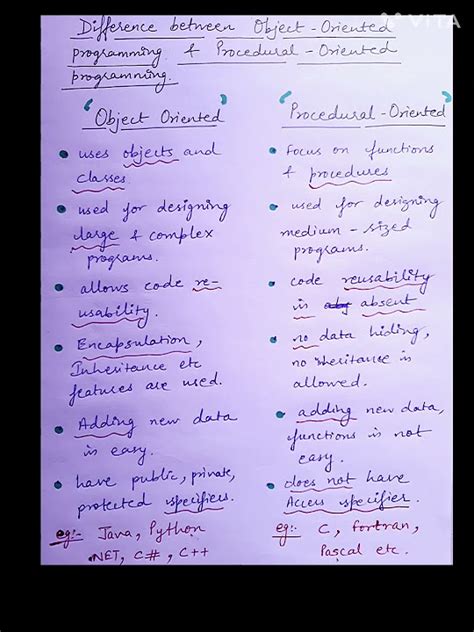 VITA
Difference between Object-Oriented
programming & Procedural-Oriented
programming.
Object Oriented
• uses objects and
classes
• used for designing
large & complex
programs.
• allows code re-
usability.
• Encapsulation,
Inheritance etc
features are used.
• Adding new data
is easy.
• have public, private,
protected specifiers.
eg:- Java, Python
.NET, C#, C++
Procedural-Oriented
• focus on functions
& procedures
• used for designing
medium-sized
programs.
• code reusability
is absent
• no data hiding,
no inheritance is
allowed.
• adding new data,
functions is not
easy.
• does not have
Access specifier.
eg:- C, fortran,
Pascal etc.